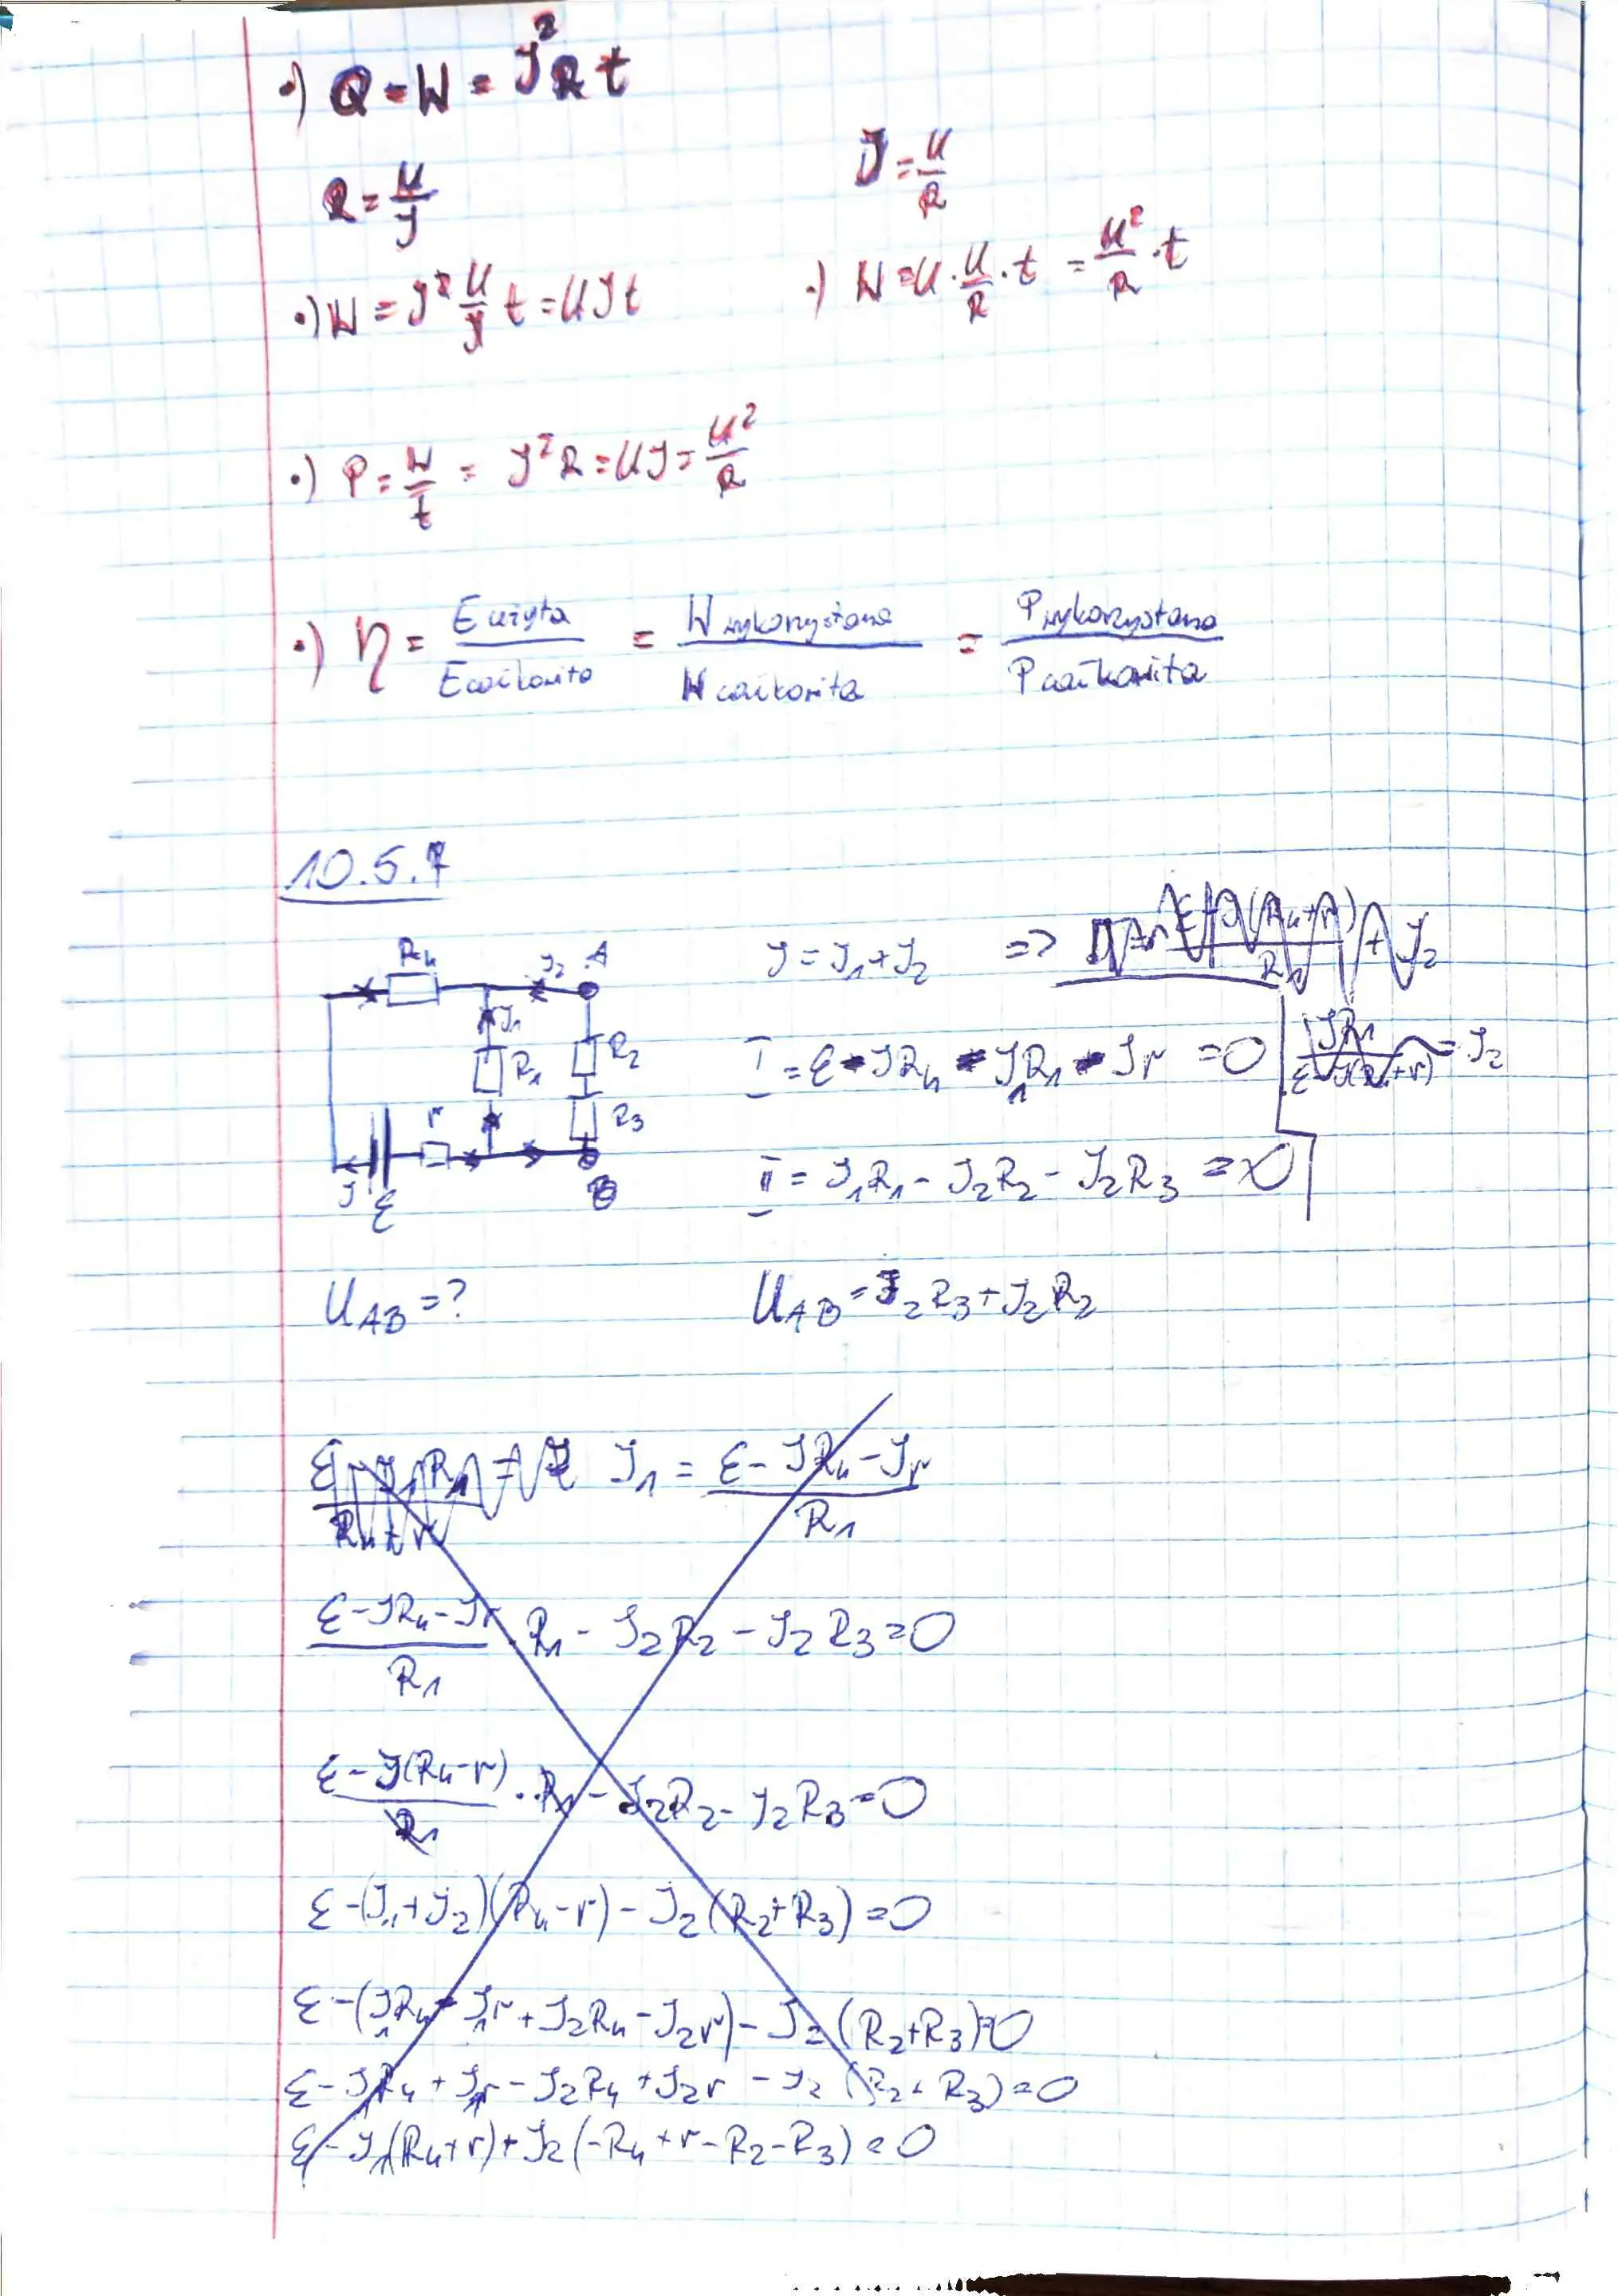 •) Q = W = J²Rt
R = U/J
J = U/R
•) W = J² U/J t = UJt
•) W = U · U/R · t = U²/R · t
•) P = W/t = J²R = UJ = U²/R
•) η = E użyta / E całkowita = W wykorzystana / W całkowita = P wykorzystana / P całkowita
10.5.7
R₄ J₂ A
J₁
R₁ R₂
r R₃
J ε B
J = J₁ + J₂ =>
I = ε - JR₄ - J₁R₁ - Jr = 0
= J₂
II = J₁R₁ - J₂R₂ - J₂R₃ = 0
U_AB = ?
U_AB = J₂R₃ + J₂R₂
J₁ = (ε - JR₄ - Jr) / R₁
(ε - JR₄ - Jr) / R₁ · R₁ - J₂R₂ - J₂R₃ = 0
(ε - J(R₄ - r)) / R₁ · R₁ - J₂R₂ - J₂R₃ = 0
ε - (J₁ + J₂)(R₄ - r) - J₂(R₂ + R₃) = 0
ε - (J₁R₄ - J₁r + J₂R₄ - J₂r) - J₂(R₂ + R₃) = 0
ε - J₁R₄ + J₁r - J₂R₄ + J₂r - J₂(R₂ + R₃) = 0
ε - J₁(R₄ + r) + J₂(-R₄ + r - R₂ - R₃) = 0